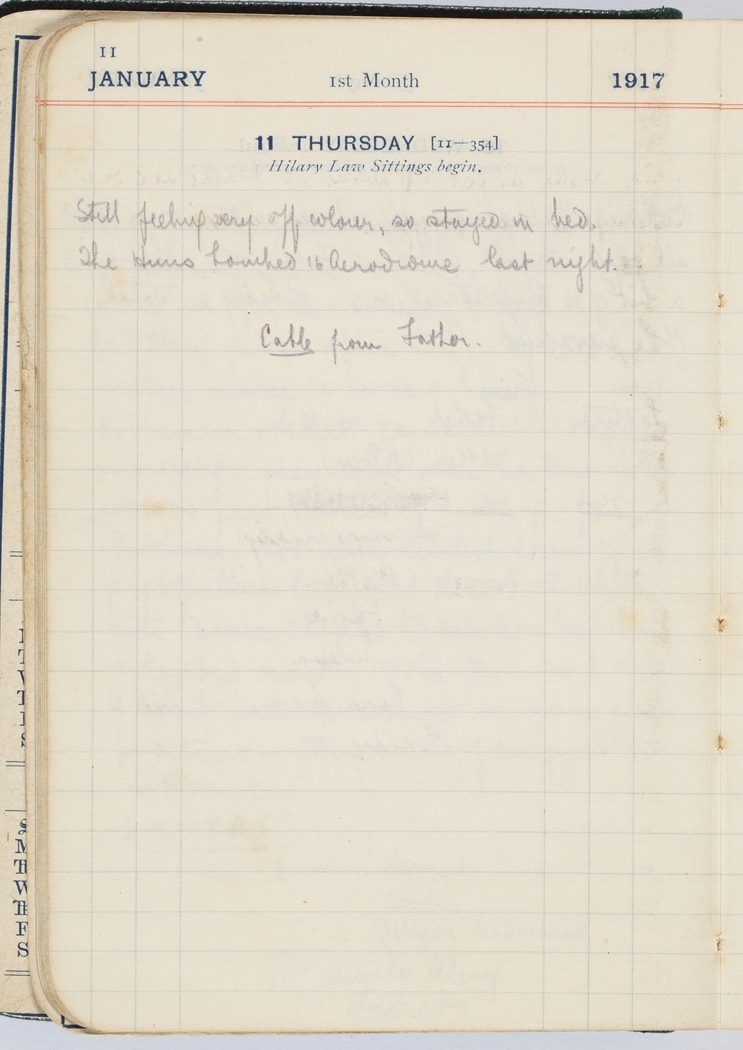 11
JANUARY 1st Month 1917
11 THURSDAY [11—354]
Hilary Law Sittings begin.
Still feeling very off colour, so stayed in bed.
The Huns bombed 16 Aerodrome last night.
Cable from Father.
T
W
T
F
S
S
M
Tu
W
Th
F
S